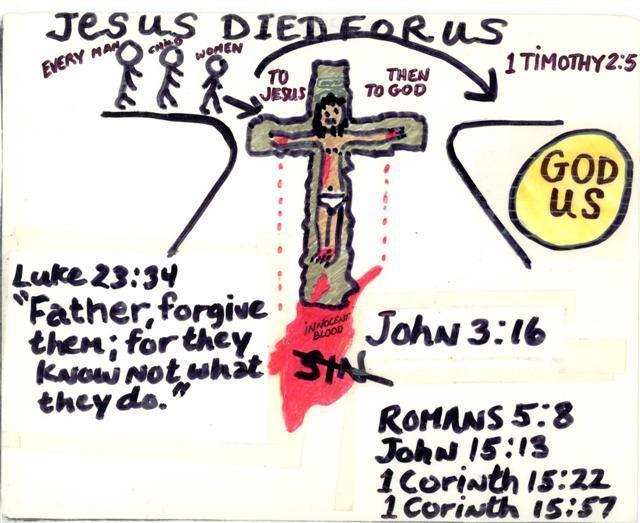 JESUS DIED FOR US
EVERY MAN CHILD WOMEN
TO
JESUS
THEN
TO GOD
1 TIMOTHY 2:5
GOD
US
Luke 23:34
"Father, forgive
them; for they
know not what
they do."
INNOCENT
BLOOD
SIN
John 3:16
ROMANS 5:8
John 15:13
1 Corinth 15:22
1 Corinth 15:57